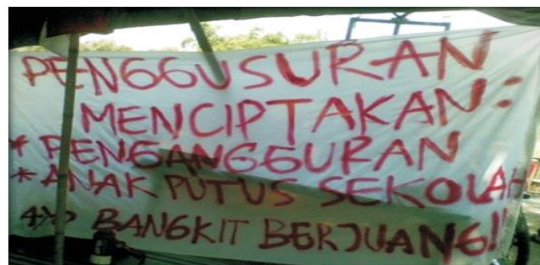 PENGGUSURAN
MENCIPTAKAN:
* PENGANGGURAN
* ANAK PUTUS SEKOLAH
AYO BANGKIT BERJUANG!!